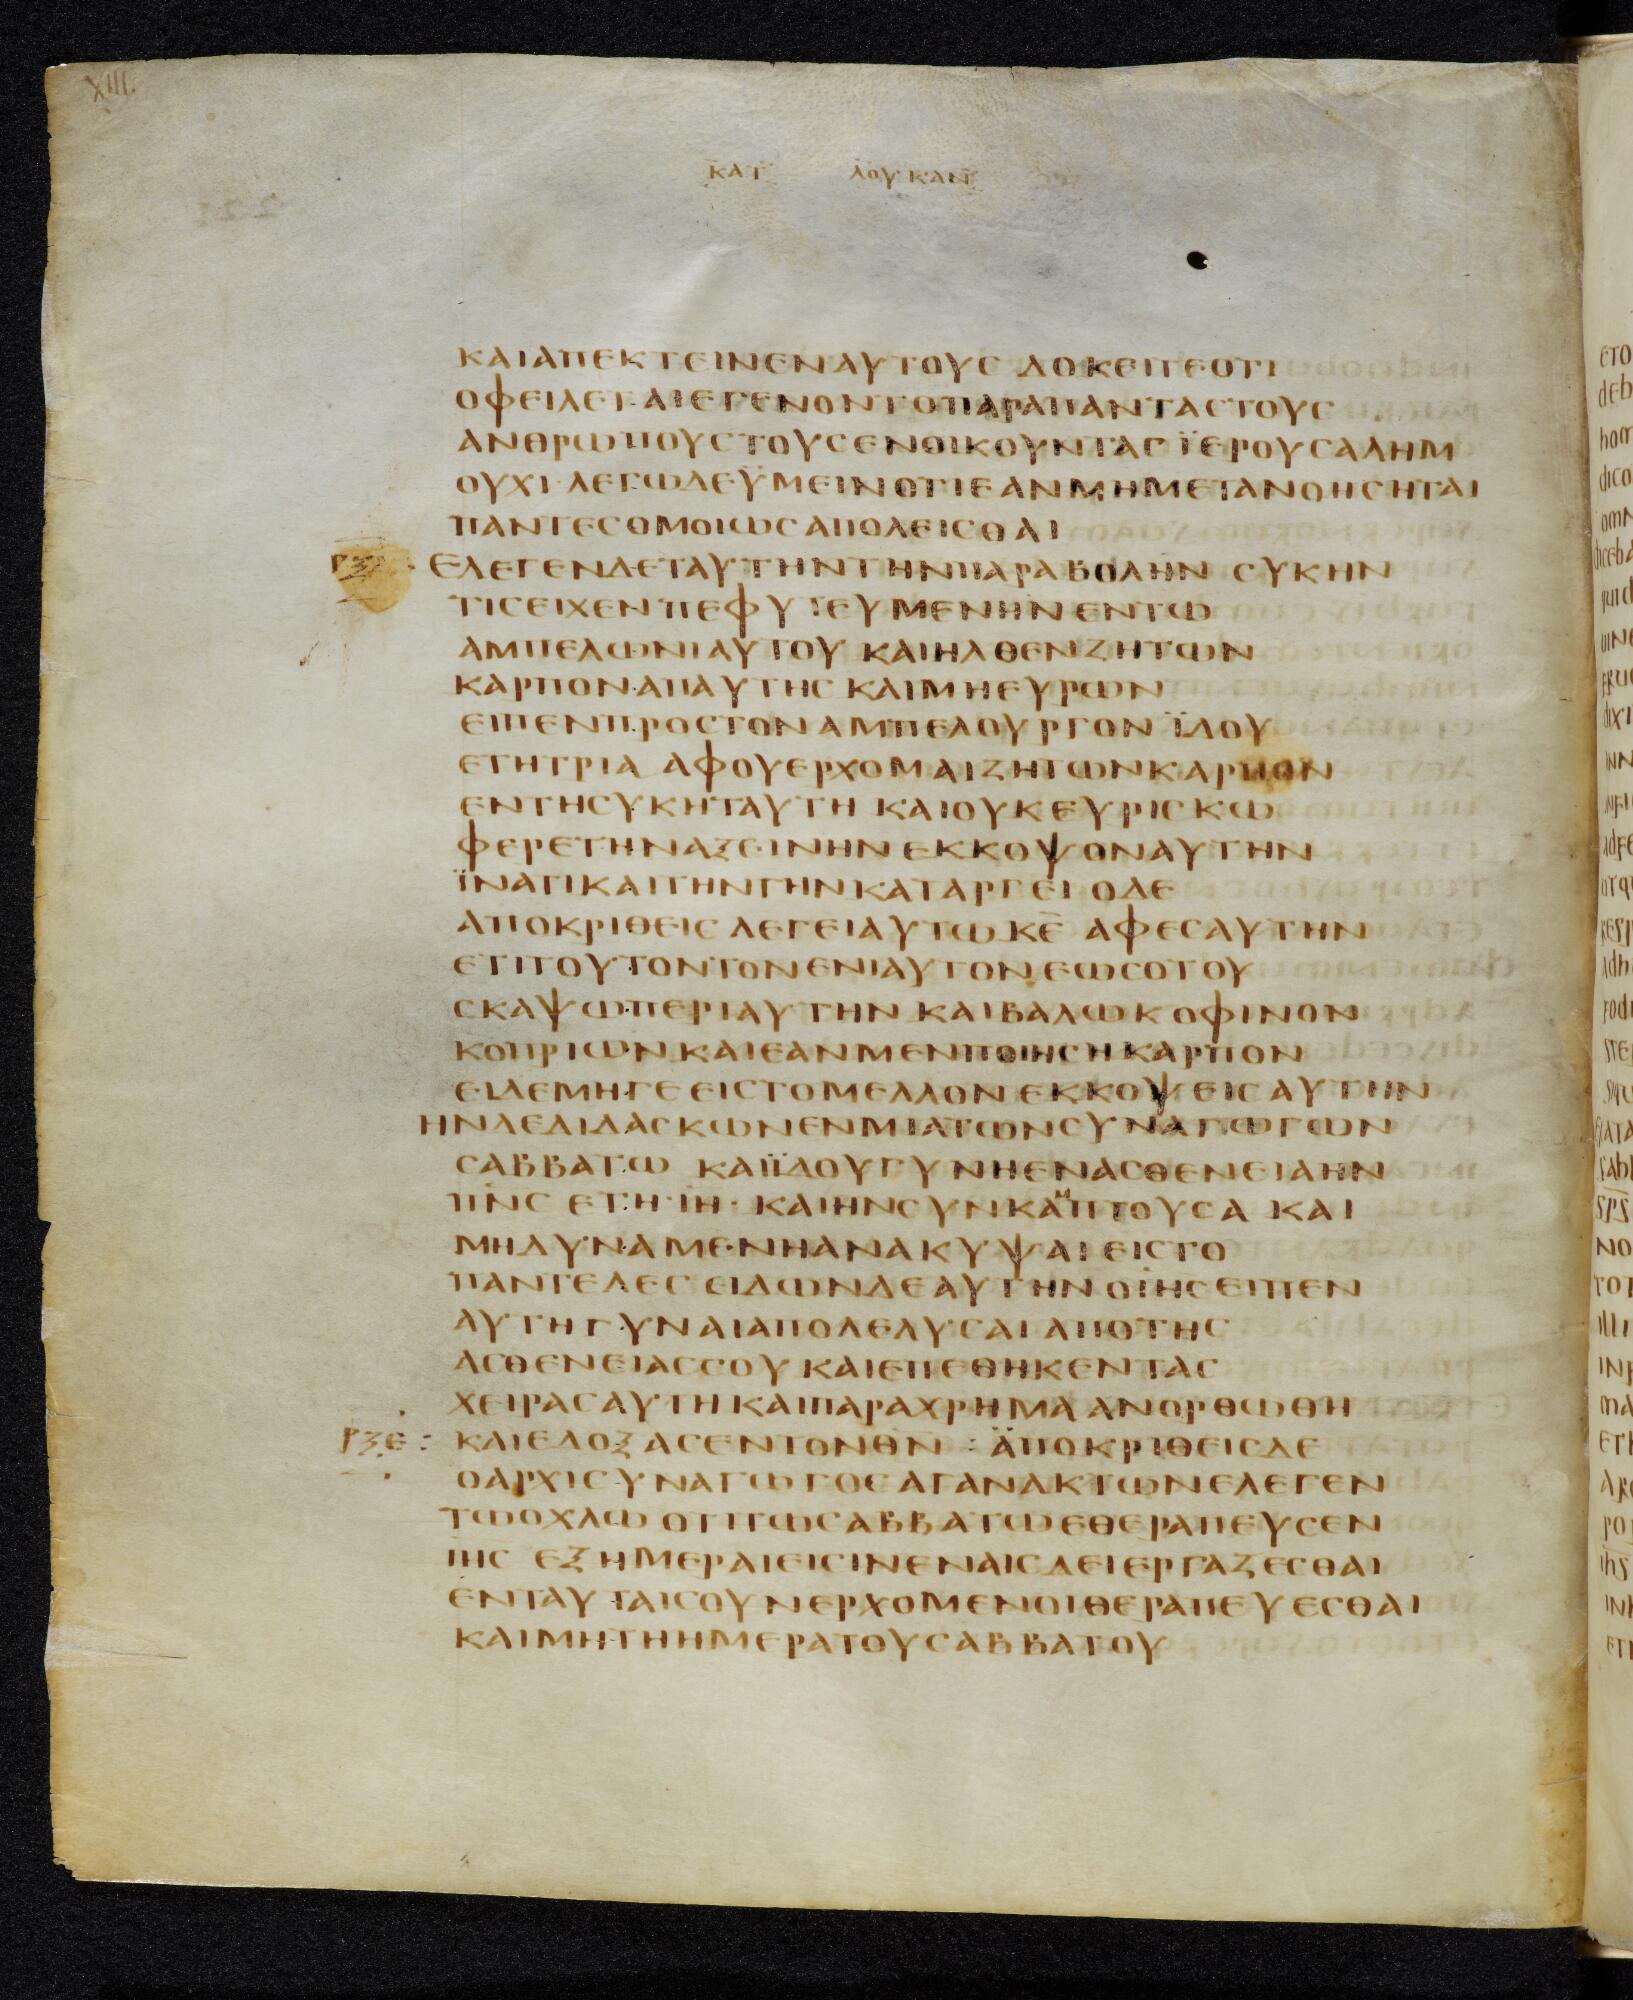 XIII.
ΚΑΤ ΛΟΥΚΑΝ
ΚΑΙΑΠΕΚΤΕΙΝΕΝΑΥΤΟΥΣ ΔΟΚΕΙΤΕΟΤΙ
ΟΦΕΙΛΕΤΑΙΕΓΕΝΟΝΤΟΠΑΡΑΠΑΝΤΑΣΤΟΥΣ
ΑΝΘΡΩΠΟΥΣΤΟΥΣΕΝΟΙΚΟΥΝΤΑΣ ΪΕΡΟΥΣΑΛΗΜ
ΟΥΧΙ·ΛΕΓΩΔΕΫΜΕΙΝΟΤΙΕΑΝΜΗΜΕΤΑΝΟΗΣΗΤΑΙ
ΠΑΝΤΕΣΟΜΟΙΩΣΑΠΟΛΕΙΣΘΑΙ
ΕΛΕΓΕΝΔΕΤΑΥΤΗΝΤΗΝΠΑΡΑΒΟΛΗΝ ΣΥΚΗΝ
ΤΙΣΕΙΧΕΝΠΕΦΥΤΕΥΜΕΝΗΝΕΝΤΩ
ΑΜΠΕΛΩΝΙΑΥΤΟΥ ΚΑΙΗΛΘΕΝΖΗΤΩΝ
ΚΑΡΠΟΝ·ΑΠΑΥΤΗΣ ΚΑΙΜΗΕΥΡΩΝ
ΕΙΠΕΝΠΡΟΣΤΟΝΑΜΠΕΛΟΥΡΓΟΝ ΪΔΟΥ
ΕΤΗΤΡΙΑ ΑΦΟΥΕΡΧΟΜΑΙΖΗΤΩΝΚΑΡΠΟΝ
ΕΝΤΗΣΥΚΗΤΑΥΤΗ ΚΑΙΟΥΚΕΥΡΙΣΚΩ
ΦΕΡΕΤΗΝΑΞΕΙΝΗΝ ΕΚΚΟΨΟΝΑΥΤΗΝ
ΪΝΑΤΙΚΑΙΤΗΝΓΗΝΚΑΤΑΡΓΕΙ ΟΔΕ
ΑΠΟΚΡΙΘΕΙΣ ΛΕΓΕΙΑΥΤΩ ΚΕ̅ ΑΦΕΣΑΥΤΗΝ
ΕΤΙΤΟΥΤΟΝΤΟΝΕΝΙΑΥΤΟΝ ΕΩΣΟΤΟΥ
ΣΚΑΨΩΠΕΡΙΑΥΤΗΝ ΚΑΙΒΑΛΩΚΟΦΙΝΟΝ
ΚΟΠΡΙΩΝ ΚΑΙΕΑΝΜΕΝΠΟΙΗΣΗΚΑΡΠΟΝ
ΕΙΔΕΜΗΓΕ ΕΙΣΤΟΜΕΛΛΟΝ ΕΚΚΟΨΕΙΣΑΥΤΗΝ
ΗΝΔΕΔΙΔΑΣΚΩΝΕΝΜΙΑΤΩΝΣΥΝΑΓΩΓΩΝ
ΣΑΒΒΑΤΩ ΚΑΙΪΔΟΥΓΥΝΗΕΝΑΣΘΕΝΕΙΑΗΝ
ΠΝΣ ΕΤΗ·ΙΗ· ΚΑΙΗΝΣΥΝΚΑΜΠΤΟΥΣΑ ΚΑΙ
ΜΗΔΥΝΑΜΕΝΗΑΝΑΚΥΨΑΙ ΕΙΣΤΟ
ΠΑΝΤΕΛΕΣ ΕΙΔΩΝΔΕΑΥΤΗΝ ΟΙΗΣΕΙΠΕΝ
ΑΥΤΗΓΥΝΑΙΑΠΟΛΕΛΥΣΑΙ ΑΠΟΤΗΣ
ΑΣΘΕΝΕΙΑΣΣΟΥ ΚΑΙΕΠΕΘΗΚΕΝΤΑΣ
ΧΕΙΡΑΣΑΥΤΗ ΚΑΙΠΑΡΑΧΡΗΜΑ ΑΝΟΡΘΩΘΗ
ΡΞΕ: ΚΑΙΕΔΟΞΑΣΕΝΤΟΝΘΝ : ΑΠΟΚΡΙΘΕΙΣΔΕ
ΟΑΡΧΙΣΥΝΑΓΩΓΟΣ ΑΓΑΝΑΚΤΩΝΕΛΕΓΕΝ
ΤΩΟΧΛΩ ΟΤΙΤΩΣΑΒΒΑΤΩΕΘΕΡΑΠΕΥΣΕΝ
ΙΗΣ ΕΞΗΜΕΡΑΙΕΙΣΙΝΕΝΑΙΣΔΕΙΕΡΓΑΖΕΣΘΑΙ
ΕΝΤΑΥΤΑΙΣΟΥΝΕΡΧΟΜΕΝΟΙΘΕΡΑΠΕΥΕΣΘΑΙ
ΚΑΙΜΗΤΗΗΜΕΡΑΤΟΥΣΑΒΒΑΤΟΥ